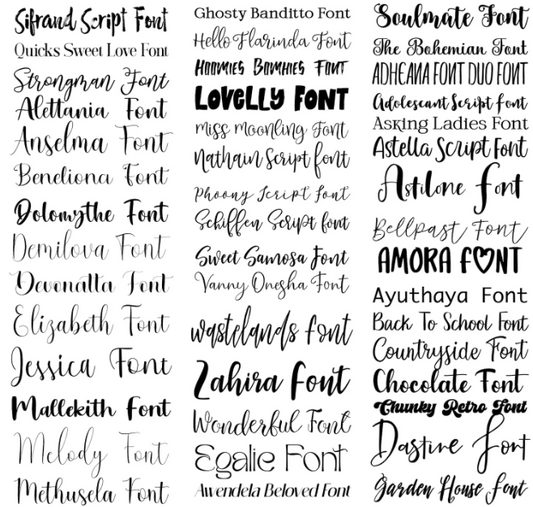 Sifrand Script Font
Quicks Sweet Love Font
Strongman Font
Alettania Font
Anselma Font
Beneliona Font
Dolomythe Font
Demilova Font
Devonatta Font
Elizabeth Font
Jessica Font
Mallekith Font
Melody Font
Methusela Font
Ghosty Banditto Font
Hello Flarinda Font
Hoomies Bomhies Font
LOVELLY FONT
Miss Moonling Font
Nathain Script font
Phoony Script Font
Schiffen Script font
Sweet Samosa Font
Vanny Onesha Font
wastelands font
Zahira Font
Wonderful Font
Egalie Font
Awendela Beloved Font
Soulmate Font
The Bohemian Font
ADHEANA FONT DUO FONT
Adolescant Script Font
Asking Ladies Font
Astella Script Font
Astilone Font
Bellpast Font
AMORA FONT
Ayuthaya Font
Back To School Font
Countryside Font
Chocolate Font
Chunky Retro Font
Dastine Font
Garden House Font